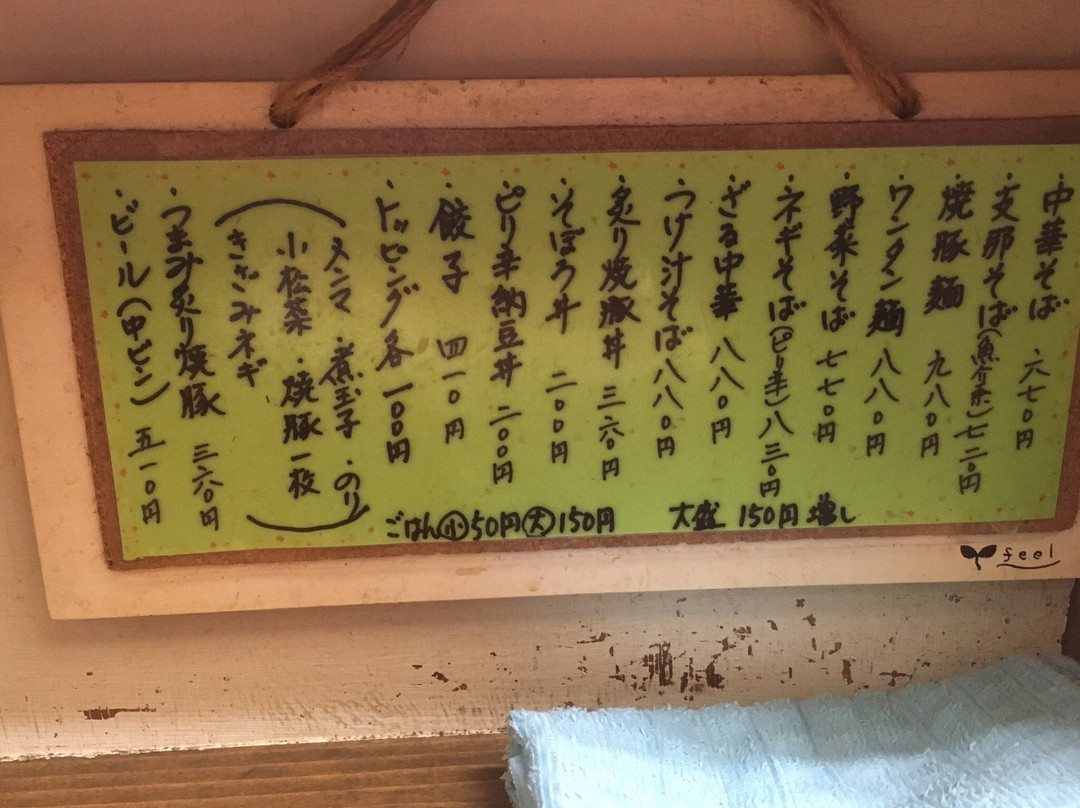 ・中華そば 六七〇円
・支那そば(魚介系)七二〇円
・焼豚麺 九八〇円
・ワンタン麺 八八〇円
・野菜そば 七七〇円
・ネギそば(ピリ辛)八三〇円
・ざる中華 八八〇円
・つけ汁そば 八八〇円
・炙り焼豚丼 三六〇円
・そぼろ丼 二〇〇円
・ピリ辛納豆丼 二〇〇円
・餃子 四一〇円
・トッピング各 一〇〇円
(メンマ ・煮玉子 ・のり
小松菜 ・焼豚一枚
きざみネギ)
・つまみ炙り焼豚 三六〇円
・ビール(中ビン) 五一〇円
ごはん小50円大150円
大盛 150円増し
feel